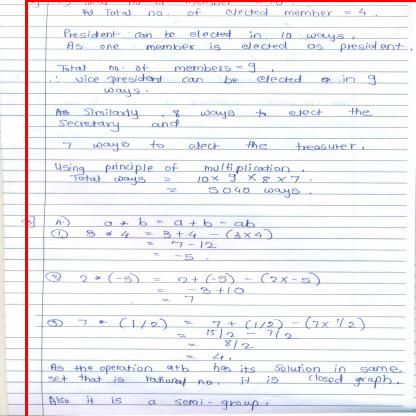 Total no. of elected member = 4.
President can be elected in 10 ways.
As one member is elected as president.
Total no. of members = 9.
∴ vice president can be elected in 9
ways.
Similarly, 8 ways to elect the
Secretary and
7 ways to elect the treasurer.
Using principle of multiplication.
Total ways = 10 × 9 × 8 × 7.
= 5040 ways.
A.) a * b = a + b - ab
① 3 * 4 = 3 + 4 - (3×4)
= 7 - 12
= -5.
② 2 * (-5) = 2 + (-5) - (2x-5)
= -3 + 10
= 7
③ 7 * (1/2) = 7 + (1/2) - (7x 1/2)
= 15/2 - 7/2
= 8/2
= 4.
As the operation a*b has its solution in same
set that is rational no. it is closed graph.
Also it is a semi-group.